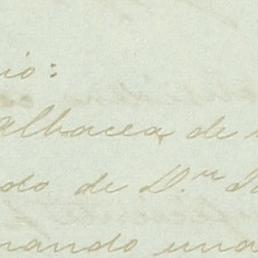 io:
albacea de
do de D.ⁿ J
nando una